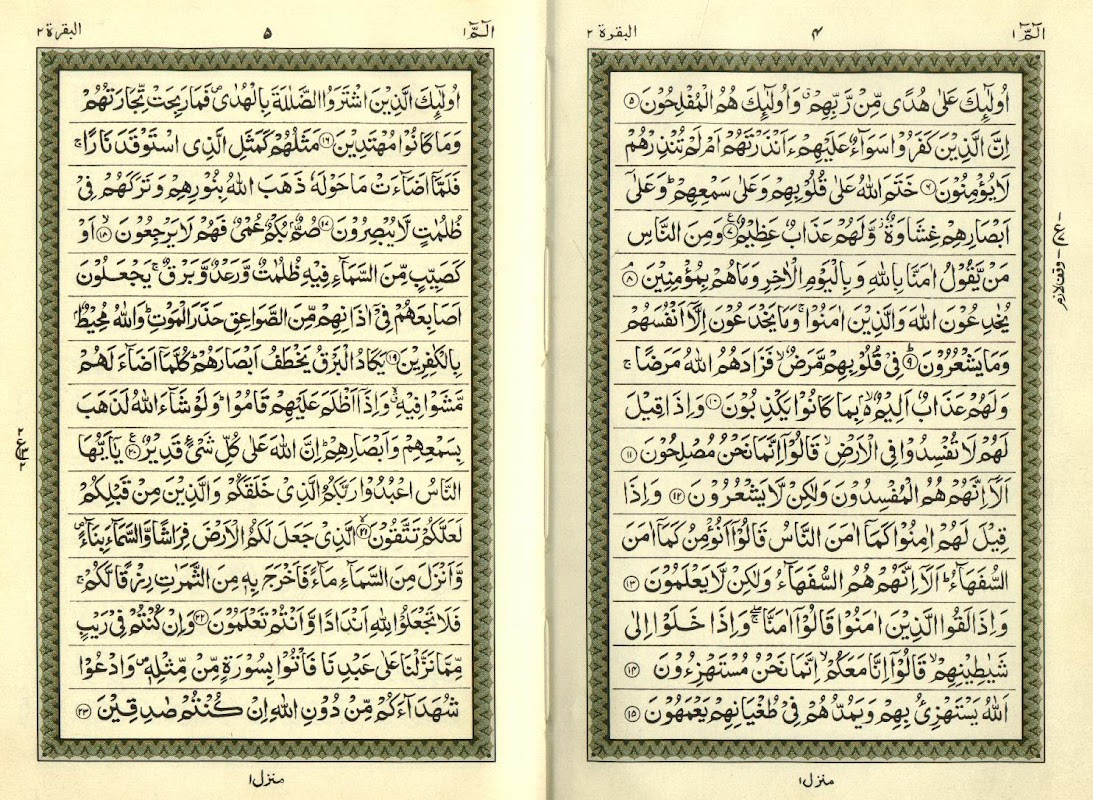 الٓمّٓ ١
۴
البقرة ٢
اُولٰٓئِكَ عَلٰى هُدًى مِّنْ رَّبِّهِمْ ۙ وَاُولٰٓئِكَ هُمُ الْمُفْلِحُوْنَ ۝۵
اِنَّ الَّذِيْنَ كَفَرُوْا سَوَآءٌ عَلَيْهِمْ ءَاَنْذَرْتَهُمْ اَمْ لَمْ تُنْذِرْهُمْ
لَا يُؤْمِنُوْنَ ۝۶ خَتَمَ اللّٰهُ عَلٰى قُلُوْبِهِمْ وَعَلٰى سَمْعِهِمْ ؕ وَعَلٰٓى
اَبْصَارِهِمْ غِشَاوَةٌ ؗ وَّلَهُمْ عَذَابٌ عَظِيْمٌ ۝۷ وَمِنَ النَّاسِ
مَنْ يَّقُوْلُ اٰمَنَّا بِاللّٰهِ وَبِالْيَوْمِ الْاٰخِرِ وَمَا هُمْ بِمُؤْمِنِيْنَ ۝۸
يُخٰدِعُوْنَ اللّٰهَ وَالَّذِيْنَ اٰمَنُوْا ۚ وَمَا يَخْدَعُوْنَ اِلَّاۤ اَنْفُسَهُمْ
وَمَا يَشْعُرُوْنَ ۝۹ فِيْ قُلُوْبِهِمْ مَّرَضٌ ۙ فَزَادَهُمُ اللّٰهُ مَرَضًا ۚ
وَلَهُمْ عَذَابٌ اَلِيْمٌ ۙ۬ بِمَا كَانُوْا يَكْذِبُوْنَ ۝۱۰ وَاِذَا قِيْلَ
لَهُمْ لَا تُفْسِدُوْا فِى الْاَرْضِ ۙ قَالُوْٓا اِنَّمَا نَحْنُ مُصْلِحُوْنَ ۝۱۱
اَلَآ اِنَّهُمْ هُمُ الْمُفْسِدُوْنَ وَلٰكِنْ لَّا يَشْعُرُوْنَ ۝۱۲ وَاِذَا
قِيْلَ لَهُمْ اٰمِنُوْا كَمَآ اٰمَنَ النَّاسُ قَالُوْٓا اَنُؤْمِنُ كَمَآ اٰمَنَ
السُّفَهَآءُ ؕ اَلَآ اِنَّهُمْ هُمُ السُّفَهَآءُ وَلٰكِنْ لَّا يَعْلَمُوْنَ ۝۱۳
وَاِذَا لَقُوا الَّذِيْنَ اٰمَنُوْا قَالُوْٓا اٰمَنَّا ۚۖ وَاِذَا خَلَوْا اِلٰى
شَيٰطِيْنِهِمْ ۙ قَالُوْٓا اِنَّا مَعَكُمْ ۙ اِنَّمَا نَحْنُ مُسْتَهْزِءُوْنَ ۝۱۴
اَللّٰهُ يَسْتَهْزِئُ بِهِمْ وَيَمُدُّهُمْ فِيْ طُغْيَانِهِمْ يَعْمَهُوْنَ ۝۱۵
منزل ۱
وقف لازم
الٓمّٓ ١
۵
البقرة ٢
اُولٰٓئِكَ الَّذِيْنَ اشْتَرَوُا الضَّلٰلَةَ بِالْهُدٰى ۪ فَمَا رَبِحَتْ تِّجَارَتُهُمْ
وَمَا كَانُوْا مُهْتَدِيْنَ ۝۱۶ مَثَلُهُمْ كَمَثَلِ الَّذِى اسْتَوْقَدَ نَارًا ۚ
فَلَمَّآ اَضَآءَتْ مَا حَوْلَهٗ ذَهَبَ اللّٰهُ بِنُوْرِهِمْ وَتَرَكَهُمْ فِيْ
ظُلُمٰتٍ لَّا يُبْصِرُوْنَ ۝۱۷ صُمٌّۢ بُكْمٌ عُمْيٌ فَهُمْ لَا يَرْجِعُوْنَ ۙ۝۱۸ اَوْ
كَصَيِّبٍ مِّنَ السَّمَآءِ فِيْهِ ظُلُمٰتٌ وَّرَعْدٌ وَّبَرْقٌ ۚ يَجْعَلُوْنَ
اَصَابِعَهُمْ فِيْٓ اٰذَانِهِمْ مِّنَ الصَّوَاعِقِ حَذَرَ الْمَوْتِ ؕ وَاللّٰهُ مُحِيْطٌۢ
بِالْكٰفِرِيْنَ ۝۱۹ يَكَادُ الْبَرْقُ يَخْطَفُ اَبْصَارَهُمْ ؕ كُلَّمَآ اَضَآءَ لَهُمْ
مَّشَوْا فِيْهِ ۙۗ وَاِذَآ اَظْلَمَ عَلَيْهِمْ قَامُوْا ؕ وَلَوْ شَآءَ اللّٰهُ لَذَهَبَ
بِسَمْعِهِمْ وَاَبْصَارِهِمْ ؕ اِنَّ اللّٰهَ عَلٰى كُلِّ شَيْءٍ قَدِيْرٌ ۝۲۰ يٰٓاَيُّهَا
النَّاسُ اعْبُدُوْا رَبَّكُمُ الَّذِيْ خَلَقَكُمْ وَالَّذِيْنَ مِنْ قَبْلِكُمْ
لَعَلَّكُمْ تَتَّقُوْنَ ۙ۝۲۱ الَّذِيْ جَعَلَ لَكُمُ الْاَرْضَ فِرَاشًا وَّالسَّمَآءَ بِنَآءً ۪
وَّاَنْزَلَ مِنَ السَّمَآءِ مَآءً فَاَخْرَجَ بِهٖ مِنَ الثَّمَرٰتِ رِزْقًا لَّكُمْ ۚ
فَلَا تَجْعَلُوْا لِلّٰهِ اَنْدَادًا وَّاَنْتُمْ تَعْلَمُوْنَ ۝۲۲ وَاِنْ كُنْتُمْ فِيْ رَيْبٍ
مِّمَّا نَزَّلْنَا عَلٰى عَبْدِنَا فَاْتُوْا بِسُوْرَةٍ مِّنْ مِّثْلِهٖ ۪ وَادْعُوْا
شُهَدَآءَكُمْ مِّنْ دُوْنِ اللّٰهِ اِنْ كُنْتُمْ صٰدِقِيْنَ ۝۲۳
منزل ۱